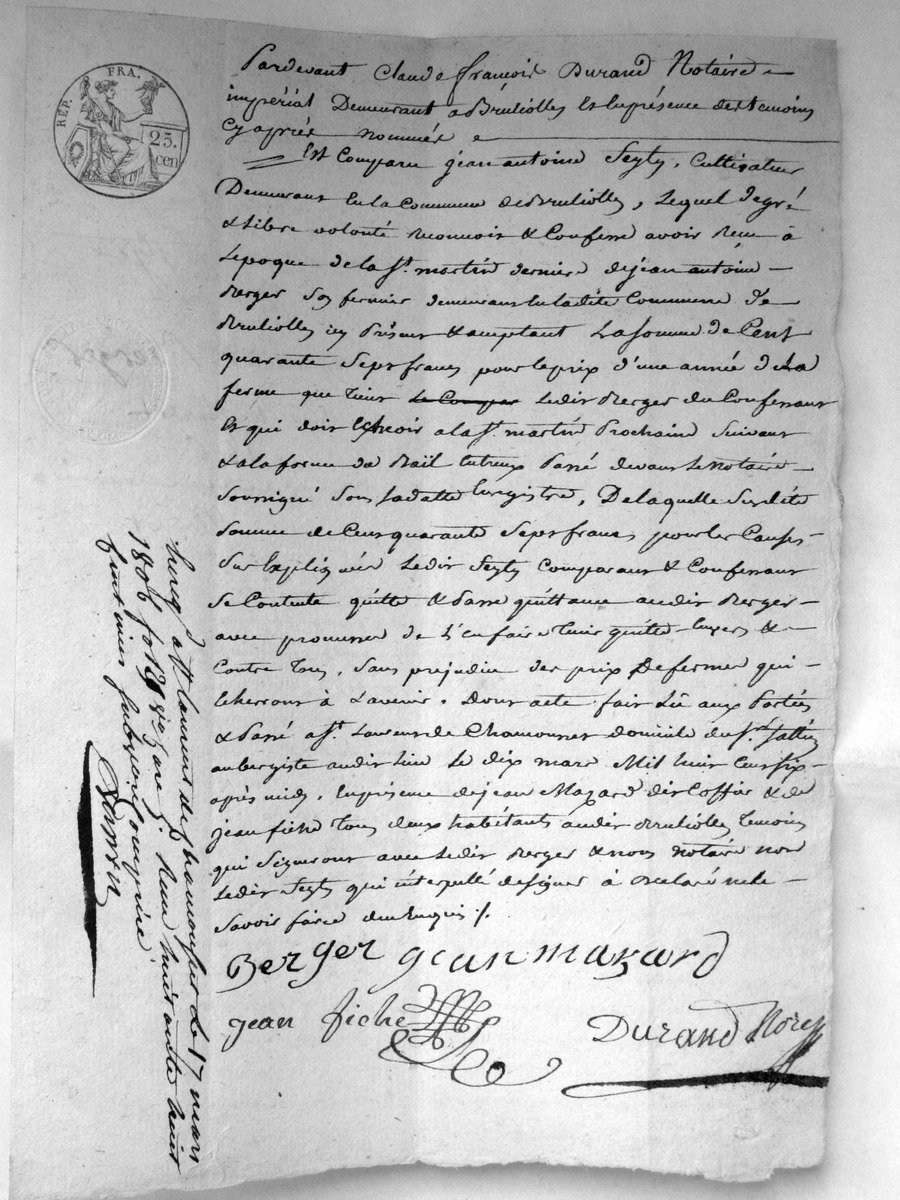 REP. FRA.
25.
cen
Pardevant Claude françois Durand Notaire
impérial Demeurant a Brulliolles En la présence des temoins
Cy après nommés
Est Comparu jean antoine Seyty, Cultivateur
Demeurant En la Commune de Brulliolles, Lequel de gré
& Libre volonté Reconnoit & Confesse avoir Reçu à
L'epoque de la St. martin derniere de jean antoine
Berger Son fermier demeurant En ladite Commune de
Brulliolles icy Présent & acceptant La somme de Cent
quarante Sept francs pour le prix d'une année de la
ferme que tient Le Compar Ledit Berger du Confessant
Et qui doit Echeoir a la St. martin Prochain Suivant
& a la forme du Bail Entreux Passé devant Le Notaire
Soussigné Sous Sa datte Enregistré, De laquelle Susdite
Somme de Cent quarante Sept francs pour les Causes
Sus Expliquées Ledit Seyty Comparant & Confessant
Se Contente quitte & Passe quittance audit Berger
avec promesse de L'en faire tenir quitte Envers &
Contre tous, Sans prejudice des prix De fermes qui
Echerront à L'avenir. Dont acte fait Lû aux Parties
& Passé a St. Laurent de Chamousset domicile du Sr.
aubergiste audit Lieu Le dix mars Mil huit Cent Six
après midy, En présence de jean Mazard dit Coffier & de
jean fiche tous deux habitants audit Brulliolles temoins
qui Signeront avec Ledit Berger & nous Notaire non
Ledit Seyty qui interpellé de signer à declaré ne le
Savoir faire Enquis /.
Berger jean mazard
jean fiche
Durand Nore
Enreg. a St. Laurent de chamousset le 17 mars
1806 fo 128 Vo Case 5. Reçu huit
subvention comprise
Berger